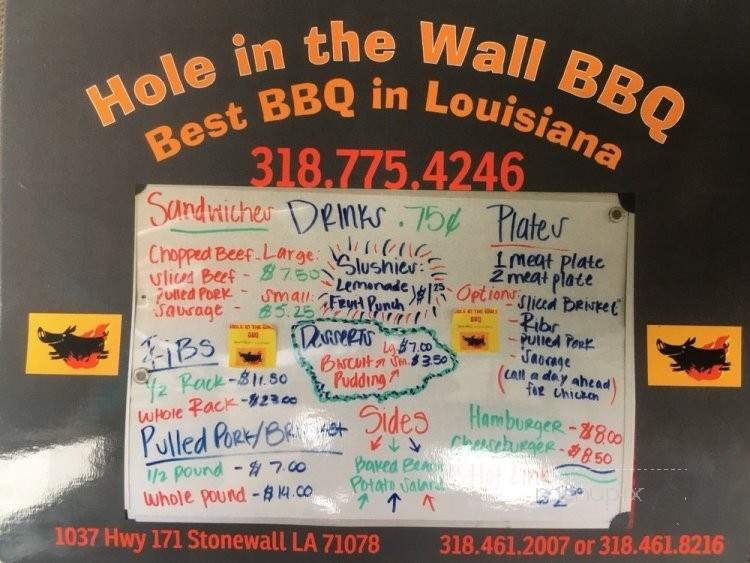 Hole in the Wall BBQ
Best BBQ in Louisiana
318.775.4246
Sandwiches
Chopped Beef - Large:
Sliced Beef - $7.50
Pulled Pork - Small:
Sausage - $5.25
DRINKS .75¢
Slushies:
Lemonade
Fruit Punch $1.25
Plates
1 meat plate
2 meat plate
Options: Sliced Brisket
- Ribs
- Pulled Pork
- Sausage
(call a day ahead
for chicken)
HOLE IN THE WALL
BBQ
HOLE IN THE WALL
BBQ
Desserts
Biscuit Lg. $7.00
Pudding Sm. $3.50
RIBS
1/2 Rack - $11.50
Whole Rack - $23.00
Pulled Pork/Brisket
1/2 pound - $7.00
Whole pound - $14.00
Sides
Baked Beans
Potato Salad
Hamburger - $8.00
Cheeseburger - $8.50
Hot Link
$2.50
1037 Hwy 171 Stonewall LA 71078
318.461.2007 or 318.461.8216